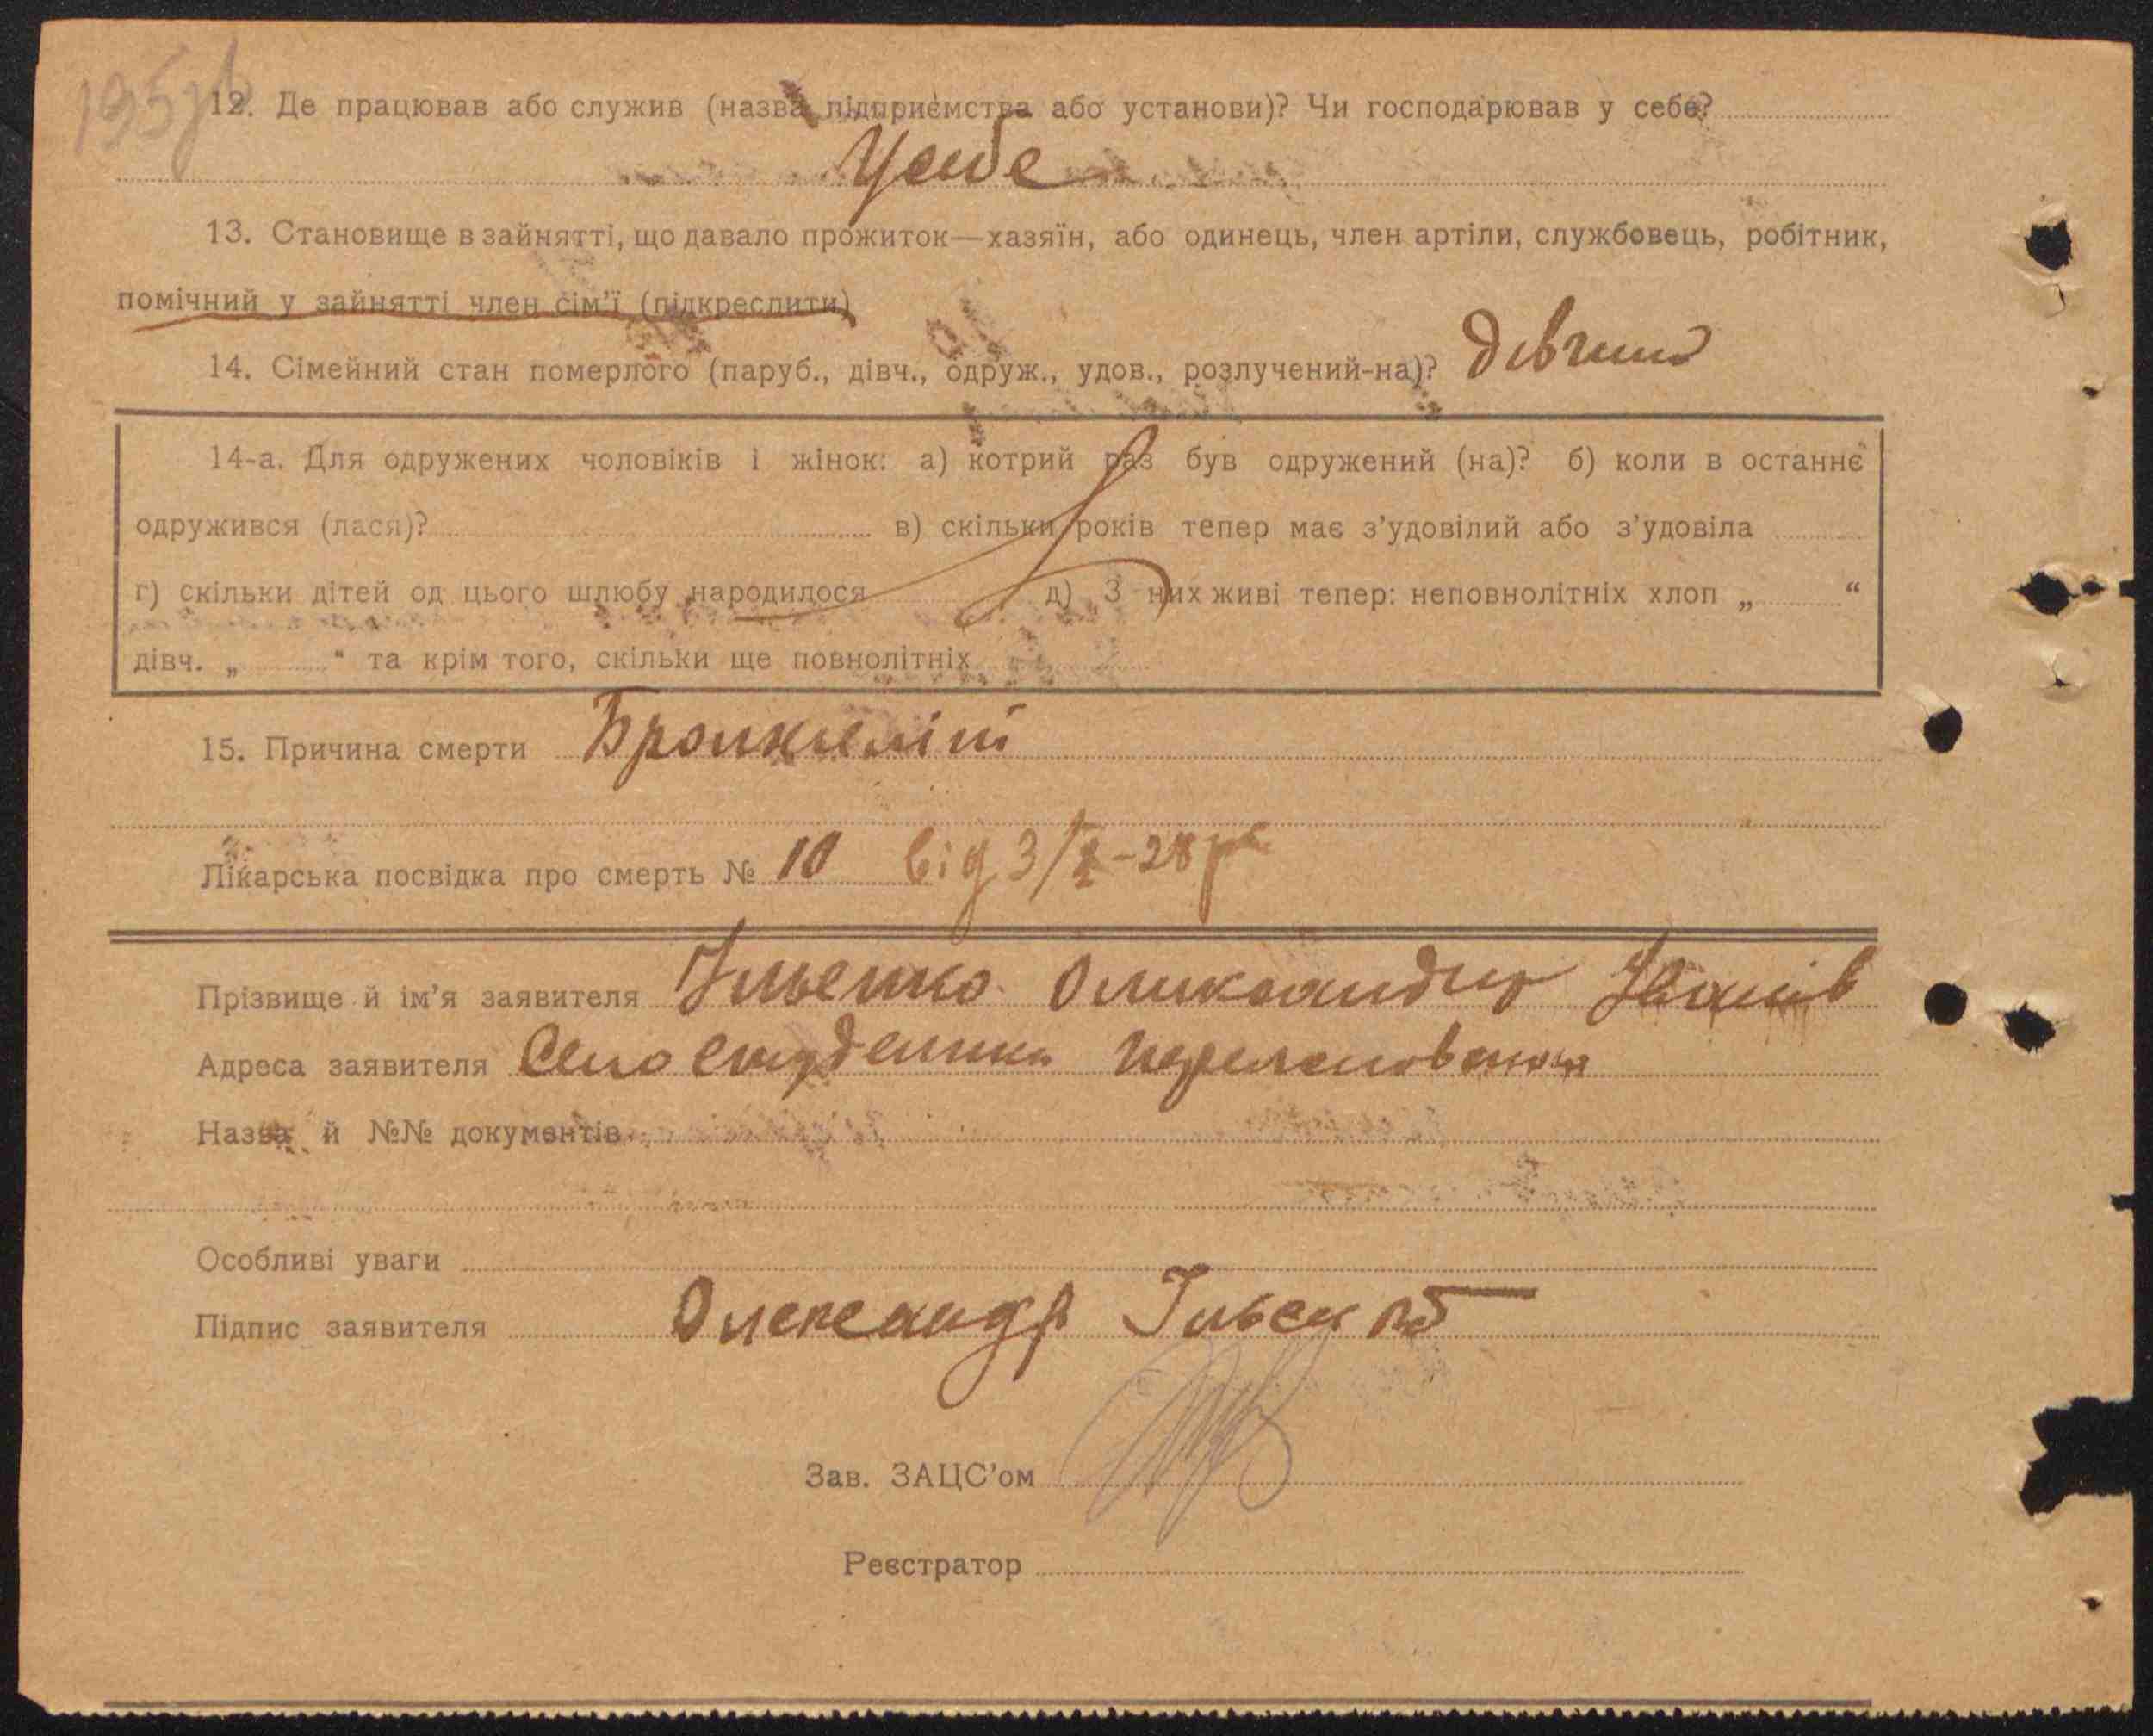 195зв
12. Де працював або служив (назва підприємства або установи)? Чи господарював у себе?
У себе
13. Становище в зайнятті, що давало прожиток—хазяїн, або одинець, член артіли, службовець, робітник,
помічний у зайнятті член сім'ї (підкреслити)
14. Сімейний стан померлого (паруб., дівч., одруж., удов., розлучений-на)? дівчина
14-а. Для одружених чоловіків і жінок: а) котрий раз був одружений (на)? б) коли в останнє
одружився (лася)? в) скільки років тепер має з'удовілий або з'удовіла
г) скільки дітей од цього шлюбу народилося д) З них живі тепер: неповнолітніх хлоп „ “
дівч. „ “ та крім того, скільки ще повнолітніх
15. Причина смерти
Лікарська посвідка про смерть № 10 від 3/X-28 р
Прізвище й ім'я заявителя Ільенко Іванів
Адреса заявителя Село
Назва й №№ документів
Особливі уваги
Підпис заявителя Олександр
Зав. ЗАЦС'ом
Реєстратор